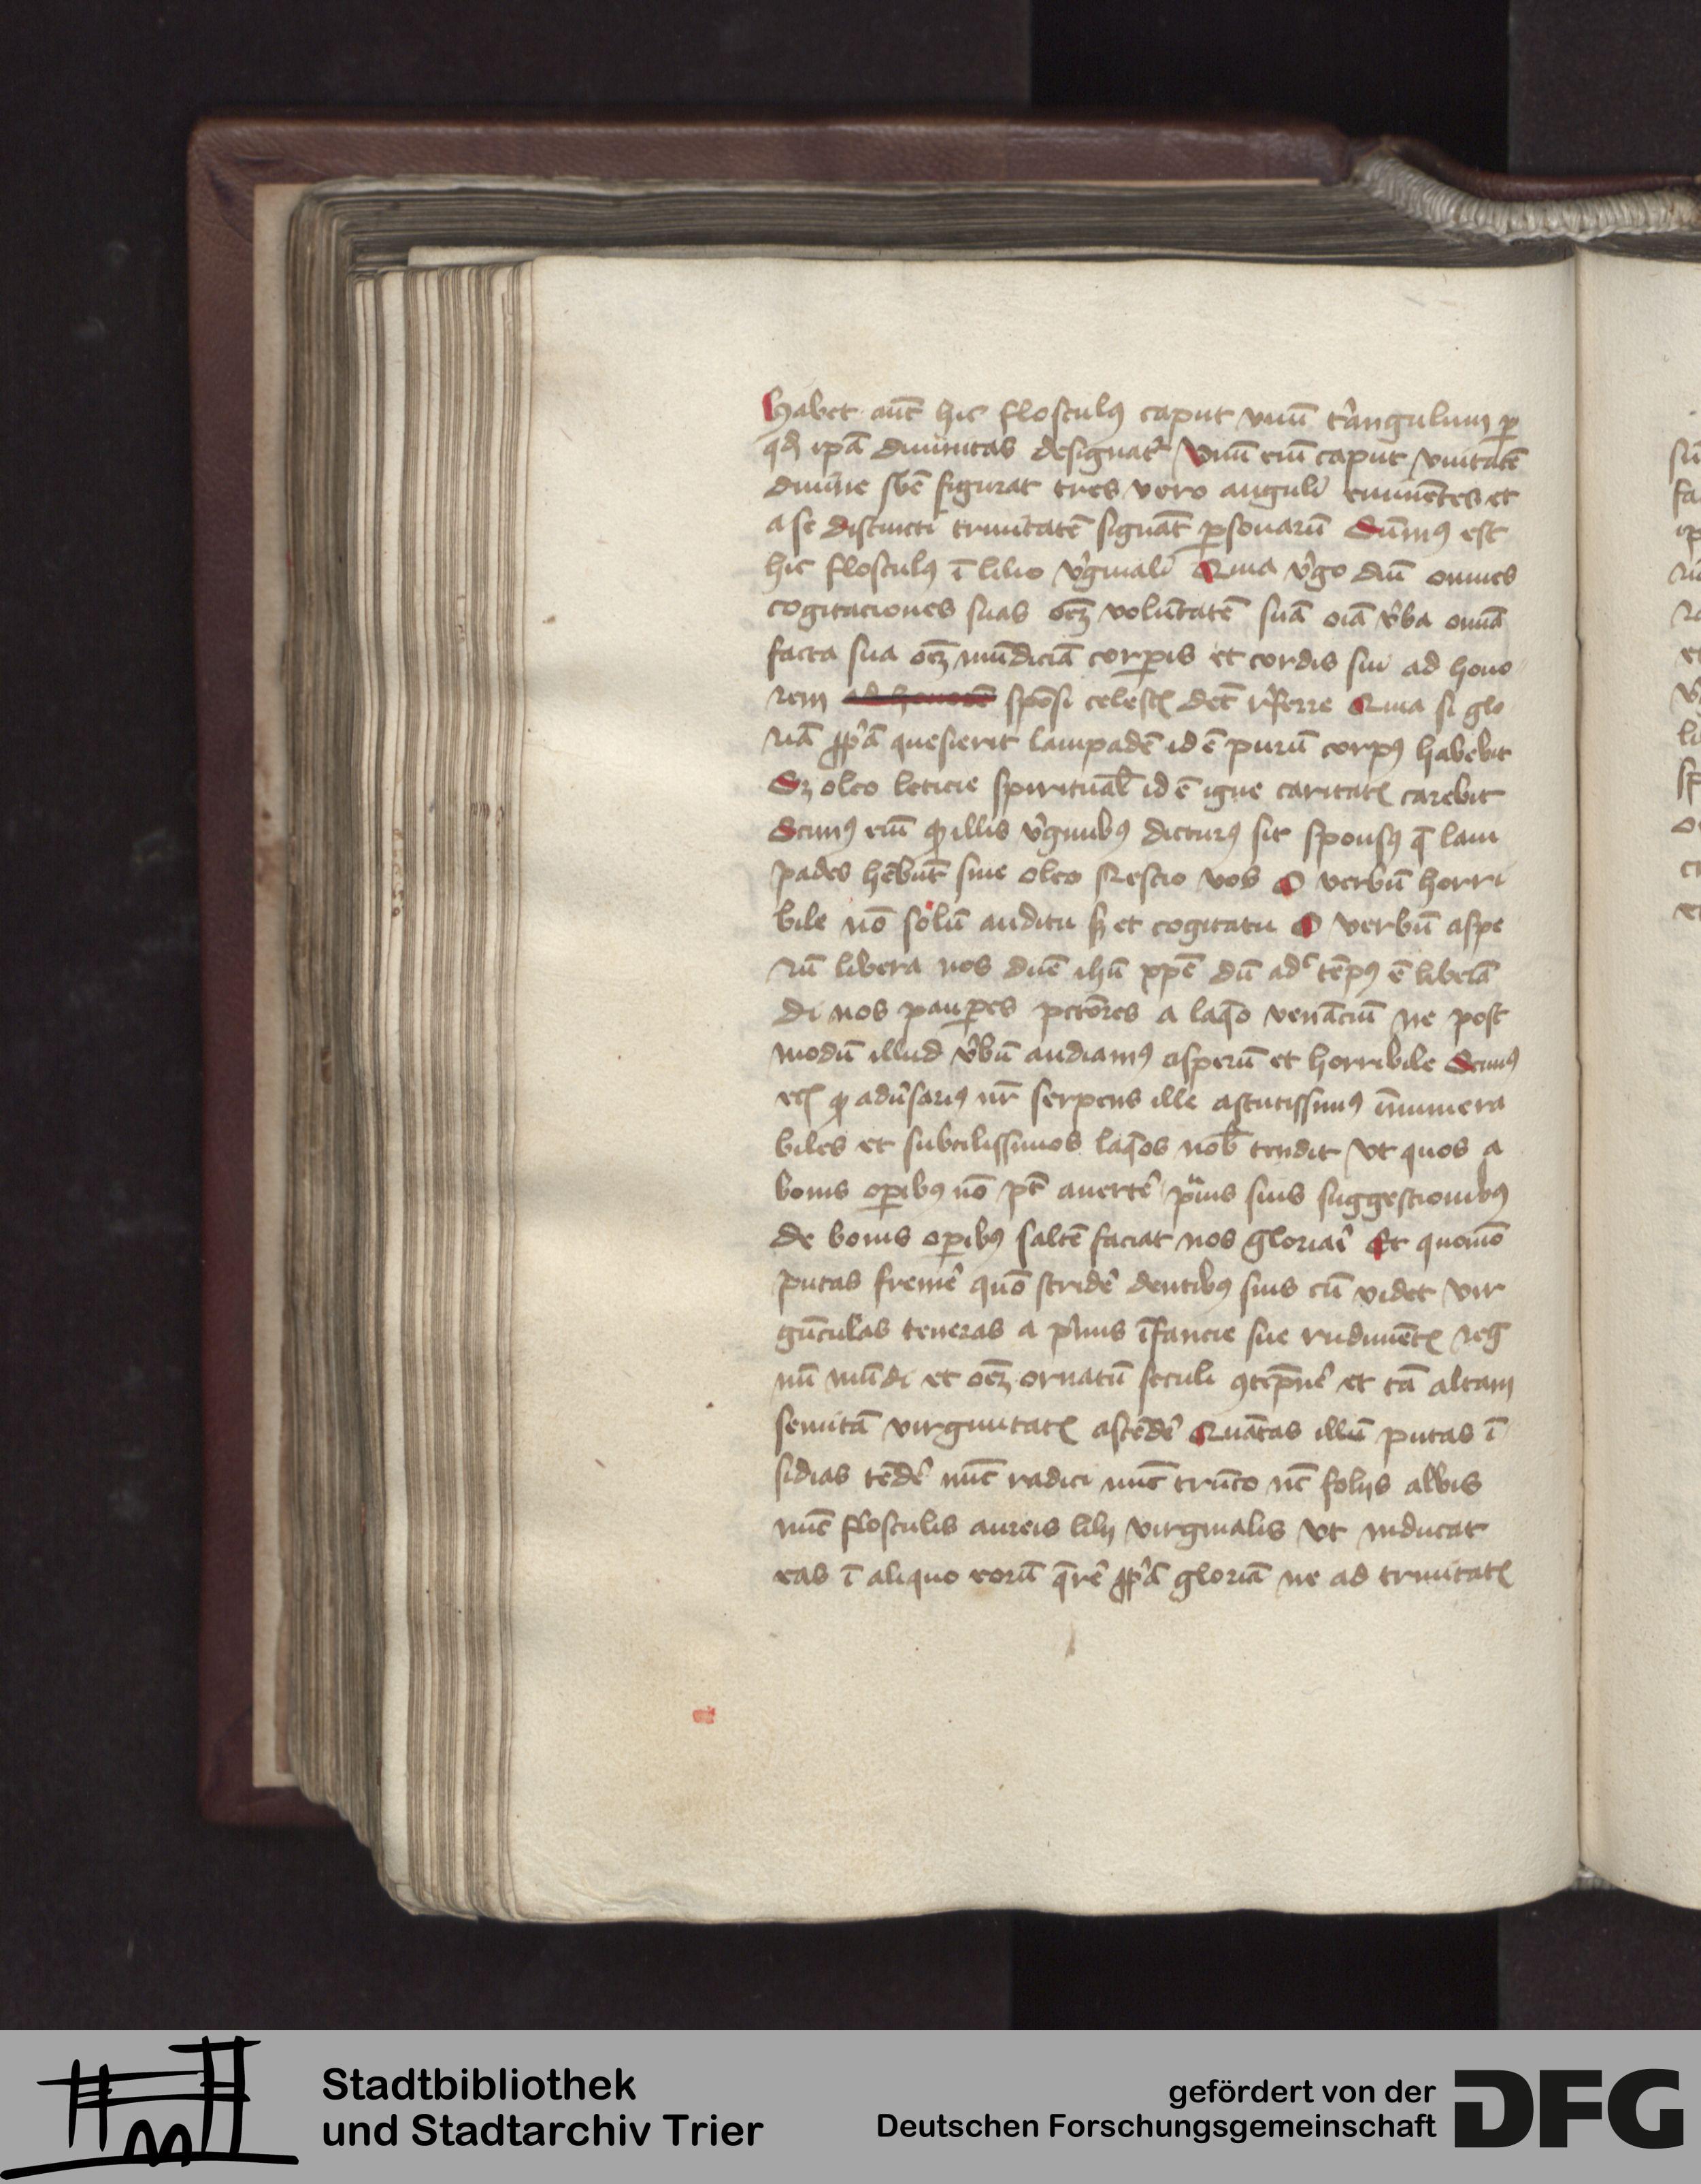 Habet aut̄ hic flosculꝯ caput vnū tͥangulum ꝑ
qd̄ ip̄a diuinitas designat᷑ Vnū eni̅ caput vnitatē
diuine sbē figurat tres vero anguli eminētes et
a se distincti trinitatē signāt ꝑsonarū Sūmꝯ est
hic flosculꝯ ī lilio vͥginali Quia vͥgo dīu omnes
cogitaciones suas oēꝫ volūtatē suā oīa vͥba omīa
facta sua oēꝫ mūdiciā corꝑis et cordis sui ad hono
rem ad honorē spōsi celestꝭ det̄ rͥferre Quia si glo
riā ꝓpͥā quesierit lampadē id ē purū corpꝯ habebit
Sꝫ oleo leticie spirituāl id ē igne caritatꝭ carebit
Scimꝯ eni̅ ꝙ illis vͥginibꝯ dicturꝯ sit sponsꝯ q̄ lam
pades hēbūt sine oleo Nescio vos O verbū horri
bile nō solū auditu sꝫ et cogitatu O verbū aspe
rū libera nos dn̄e ihū xp̄e dū adᶜ tēpꝯ ē liberā
di nos pauꝑes pctōres a laq̄o venāciū ne post
modū illud vͥbū audiamꝯ asperū et horribile Scimꝯ
etꝭ ꝙ aduͥsariꝯ nr̄ serpens ille astutissimꝯ īnumera
biles et subtilissimos laq̄os nob̄ tendit vt quos a
bonis oꝑibꝯ nō pt̄ auertēͥ pͣuis suis suggestionibꝯ
de bonis oꝑibꝯ saltē faciat nos gloriari Et quomō
putas fremeͥ quō strideͥ dentibꝯ suis cū videt vir
gūculas teneras a pͥmis īfancie sue rudimētꝭ reg
nū mūdi et oēꝫ ornatū seculi ꝯtēp̄neͥ et tā altam
semitā virginitatꝭ ascēdeͥ Quātas illū putas ī
sidias tēdeͥ nūc radici nūc trūco nc̄ folijs albis
nūc flosculis aureis lilij virginalis vt inducat
eas ī aliquo eorū q̄reͥ ꝓpͥā gloriā ne ad trinitatꝭ
Stadtbibliothek
und Stadtarchiv Trier
gefördert von der
Deutschen Forschungsgemeinschaft
DFG